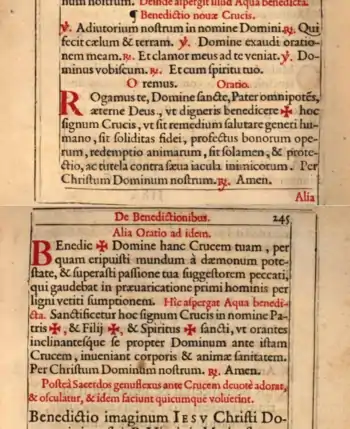 num nostrum. Deinde aspergit illud Aqua benedicta.
¶ Benedictio nouæ Crucis.
℣. Adiutorium nostrum in nomine Domini. ℟. Qui
fecit cælum & terram. ℣. Domine exaudi oratio-
nem meam. ℟. Et clamor meus ad te veniat. ℣. Do-
minus vobiscum. ℟. Et cum spiritu tuo.
Oremus. Oratio.
ROgamus te, Domine sancte, Pater omnipotẽs,
æterne Deus, vt digneris benedicere ✠ hoc
signum Crucis, vt sit remedium salutare generi hu-
mano, sit soliditas fidei, profectus bonorum ope-
rum, redemptio animarum, sit solamen, & prote-
ctio, ac tutela contra sæua iacula inimicorum. Per
Christum Dominum nostrum. ℟. Amen.
Alia
De Benedictionibus. 245
Alia Oratio ad idem.
BEnedic ✠ Domine hanc Crucem tuam, per
quam eripuisti mundum à dæmonum pote-
state, & superasti passione tua suggestorem peccati,
qui gaudebat in præuaricatione primi hominis per
ligni vetiti sumptionem. Hic aspergat Aqua benedi-
cta. Sanctificetur hoc signum Crucis in nomine Pa-
tris ✠, & Filij ✠, & Spiritus ✠ sancti, vt orantes
inclinantesque se propter Dominum ante istam
Crucem, inueniant corporis & animæ sanitatem.
Per Christum Dominum nostrum. ℟. Amen.
Posteà Sacerdos genuflexus ante Crucem deuotè adorat,
& osculatur, & idem faciunt quicumque voluerint.
Benedictio imaginum IESV Christi Do-